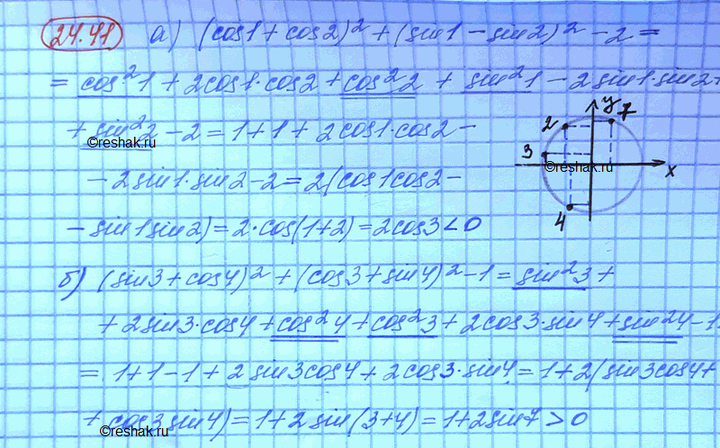 24.41 а) (cos1 + cos2)² + (sin1 − sin2)² − 2 =
= cos²1 + 2cos1·cos2 + cos²2 + sin²1 − 2sin1·sin2+
+ sin²2 − 2 = 1 + 1 + 2cos1·cos2 −
©reshak.ru
− 2sin1·sin2 − 2 = 2(cos1cos2 −
− sin1sin2) = 2·cos(1+2) = 2cos3 < 0
y 7
2
3
©reshak.ru
x
4
б) (sin3 + cos4)² + (cos3 + sin4)² − 1 = sin²3 +
+ 2sin3·cos4 + cos²4 + cos²3 + 2cos3·sin4 + sin²4 − 1
= 1 + 1 − 1 + 2sin3cos4 + 2cos3·sin4 = 1 + 2(sin3cos4 +
+ cos3sin4) = 1 + 2sin(3+4) = 1 + 2sin7 > 0
©reshak.ru